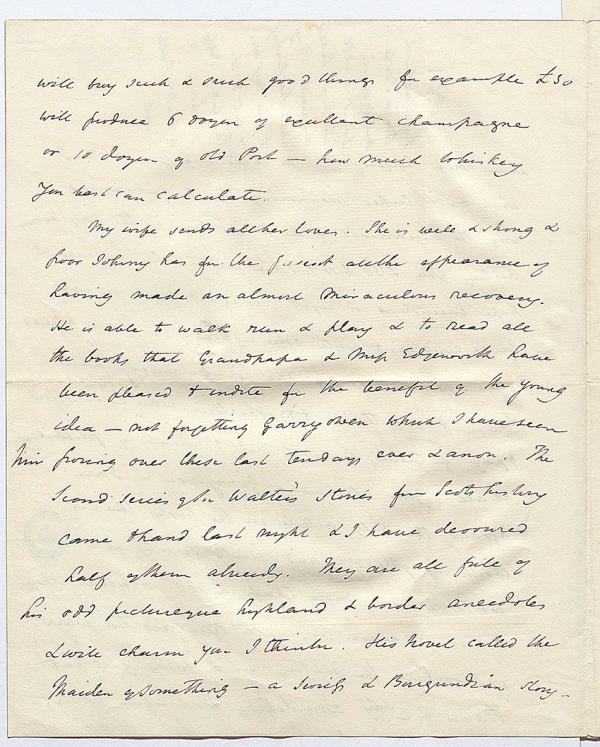 will buy such & such good things for example £30
will produce 6 dozen of excellent champagne
or 10 dozen of old Port — how much Whiskey
you best can calculate.
My wife sends all her loves. She is well & strong &
poor Johnny has for the present all the appearance of
having made an almost miraculous recovery.
He is able to walk run & play & to read all
the books that Grandpapa & Miss Edgeworth have
been pleased to indite for the benefit of the young
idea — not forgetting Garryowen which I have seen
him poring over these last ten days ever & anon. The
second series of Sir Walter's stories from Scots history
came to hand last night & I have devoured
half of them already. They are all full of
his odd picturesque highland & border anecdotes
& will charm you I think. His novel called the
Maiden of something — a Swiss & Burgundian story —